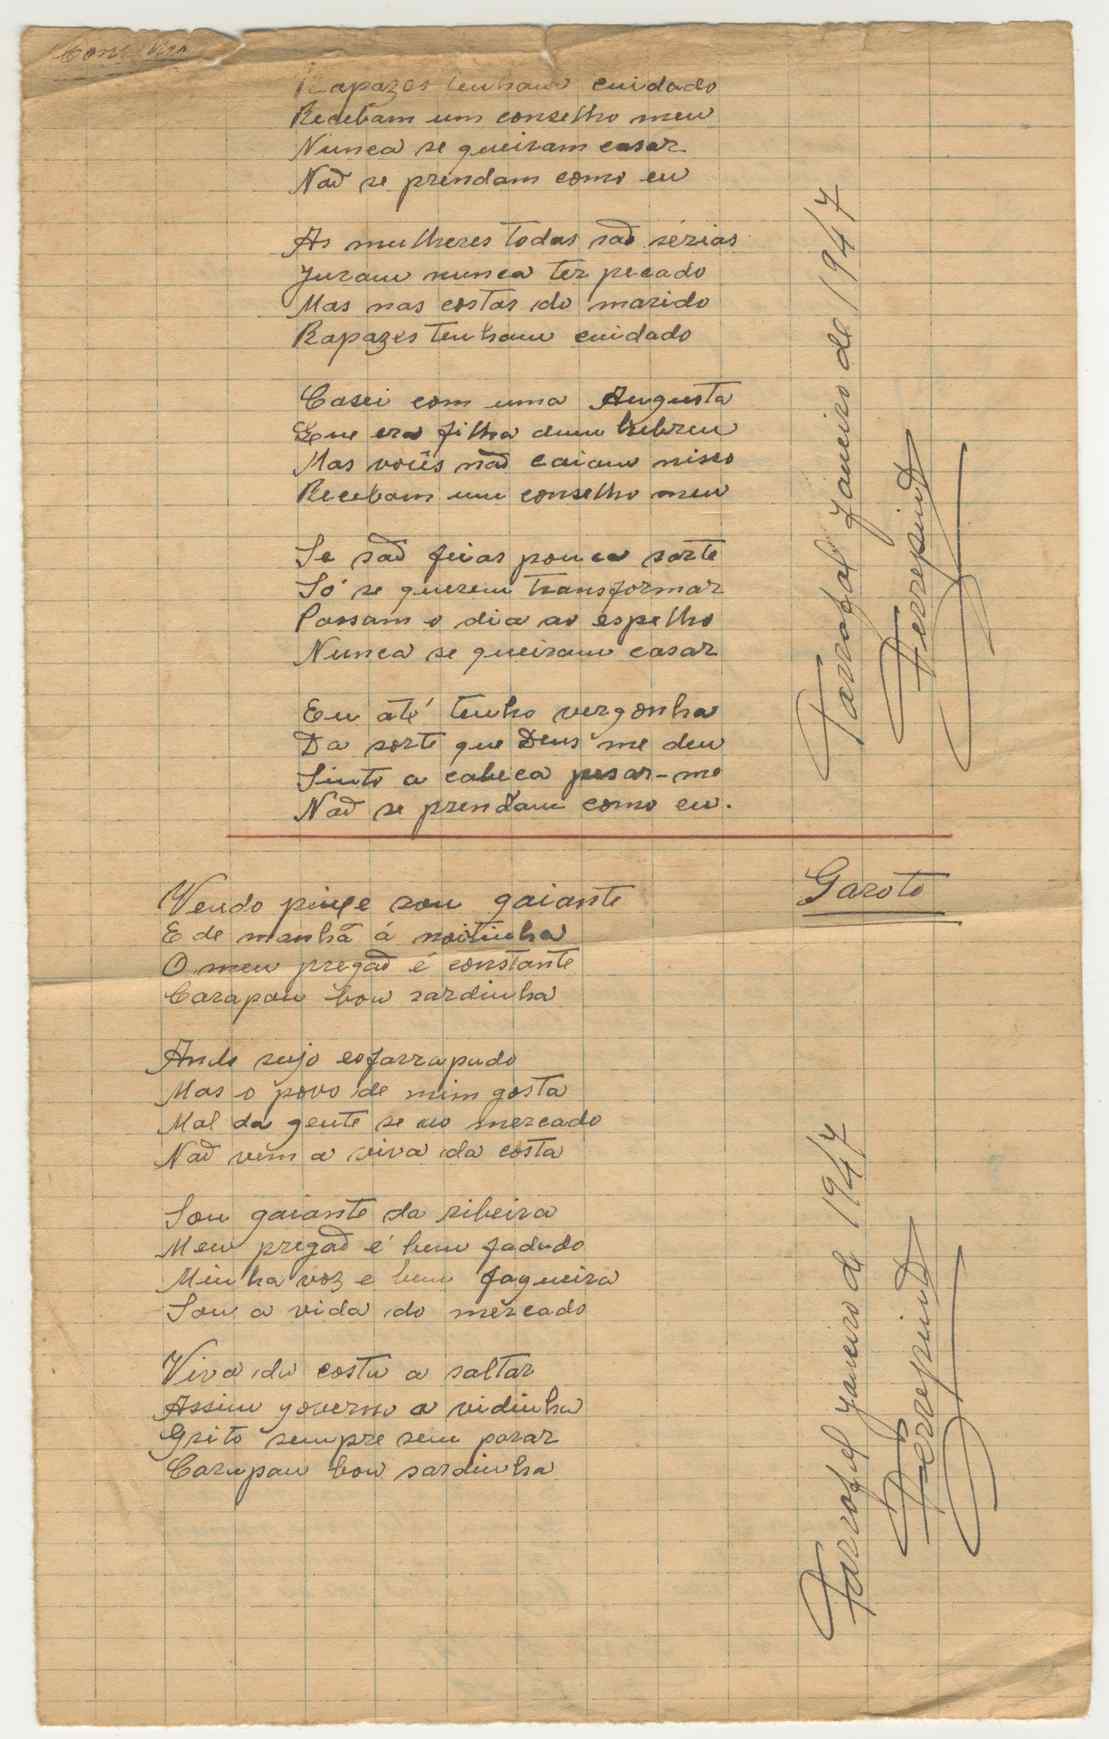 Conselho
Rapazes tenham cuidado
Recebam um conselho meu
Nunca se queiram casar
Não se prendam como eu
As mulheres todas são sérias
Juram nunca ter pecado
Mas nas costas do marido
Rapazes tenham cuidado
Casei com uma Augusta
Que era filha dum hebreu
Mas vocês não caiam nisso
Recebam um conselho meu
Se são feias pouca sorte
Só se querem transformar
Passam o dia ao espelho
Nunca se queiram casar
Eu até tenho vergonha
Da sorte que Deus me deu
Sinto a cabeca pesar-me
Não se prendam como eu.
Tarrafal Janeiro de 1947
Ferrepinto
Garoto
Vendo peixe sou gaiante
E de manhã á noitinha
O meu pregão é constante
Carapau bou sardinha
Ando sujo esfarrapado
Mas o povo de mim gosta
Mal da gente se ao mercado
Não vem a viva da costa
Sou gaiante da ribeira
Meu pregão é bem fadado
Minha voz e bem fagueira
Sou a vida do mercado
Viva da costa a saltar
Assim governo a vidinha
Grito sempre sem parar
Carapau bou sardinha
Tarrafal Janeiro de 1947
Ferrepinto